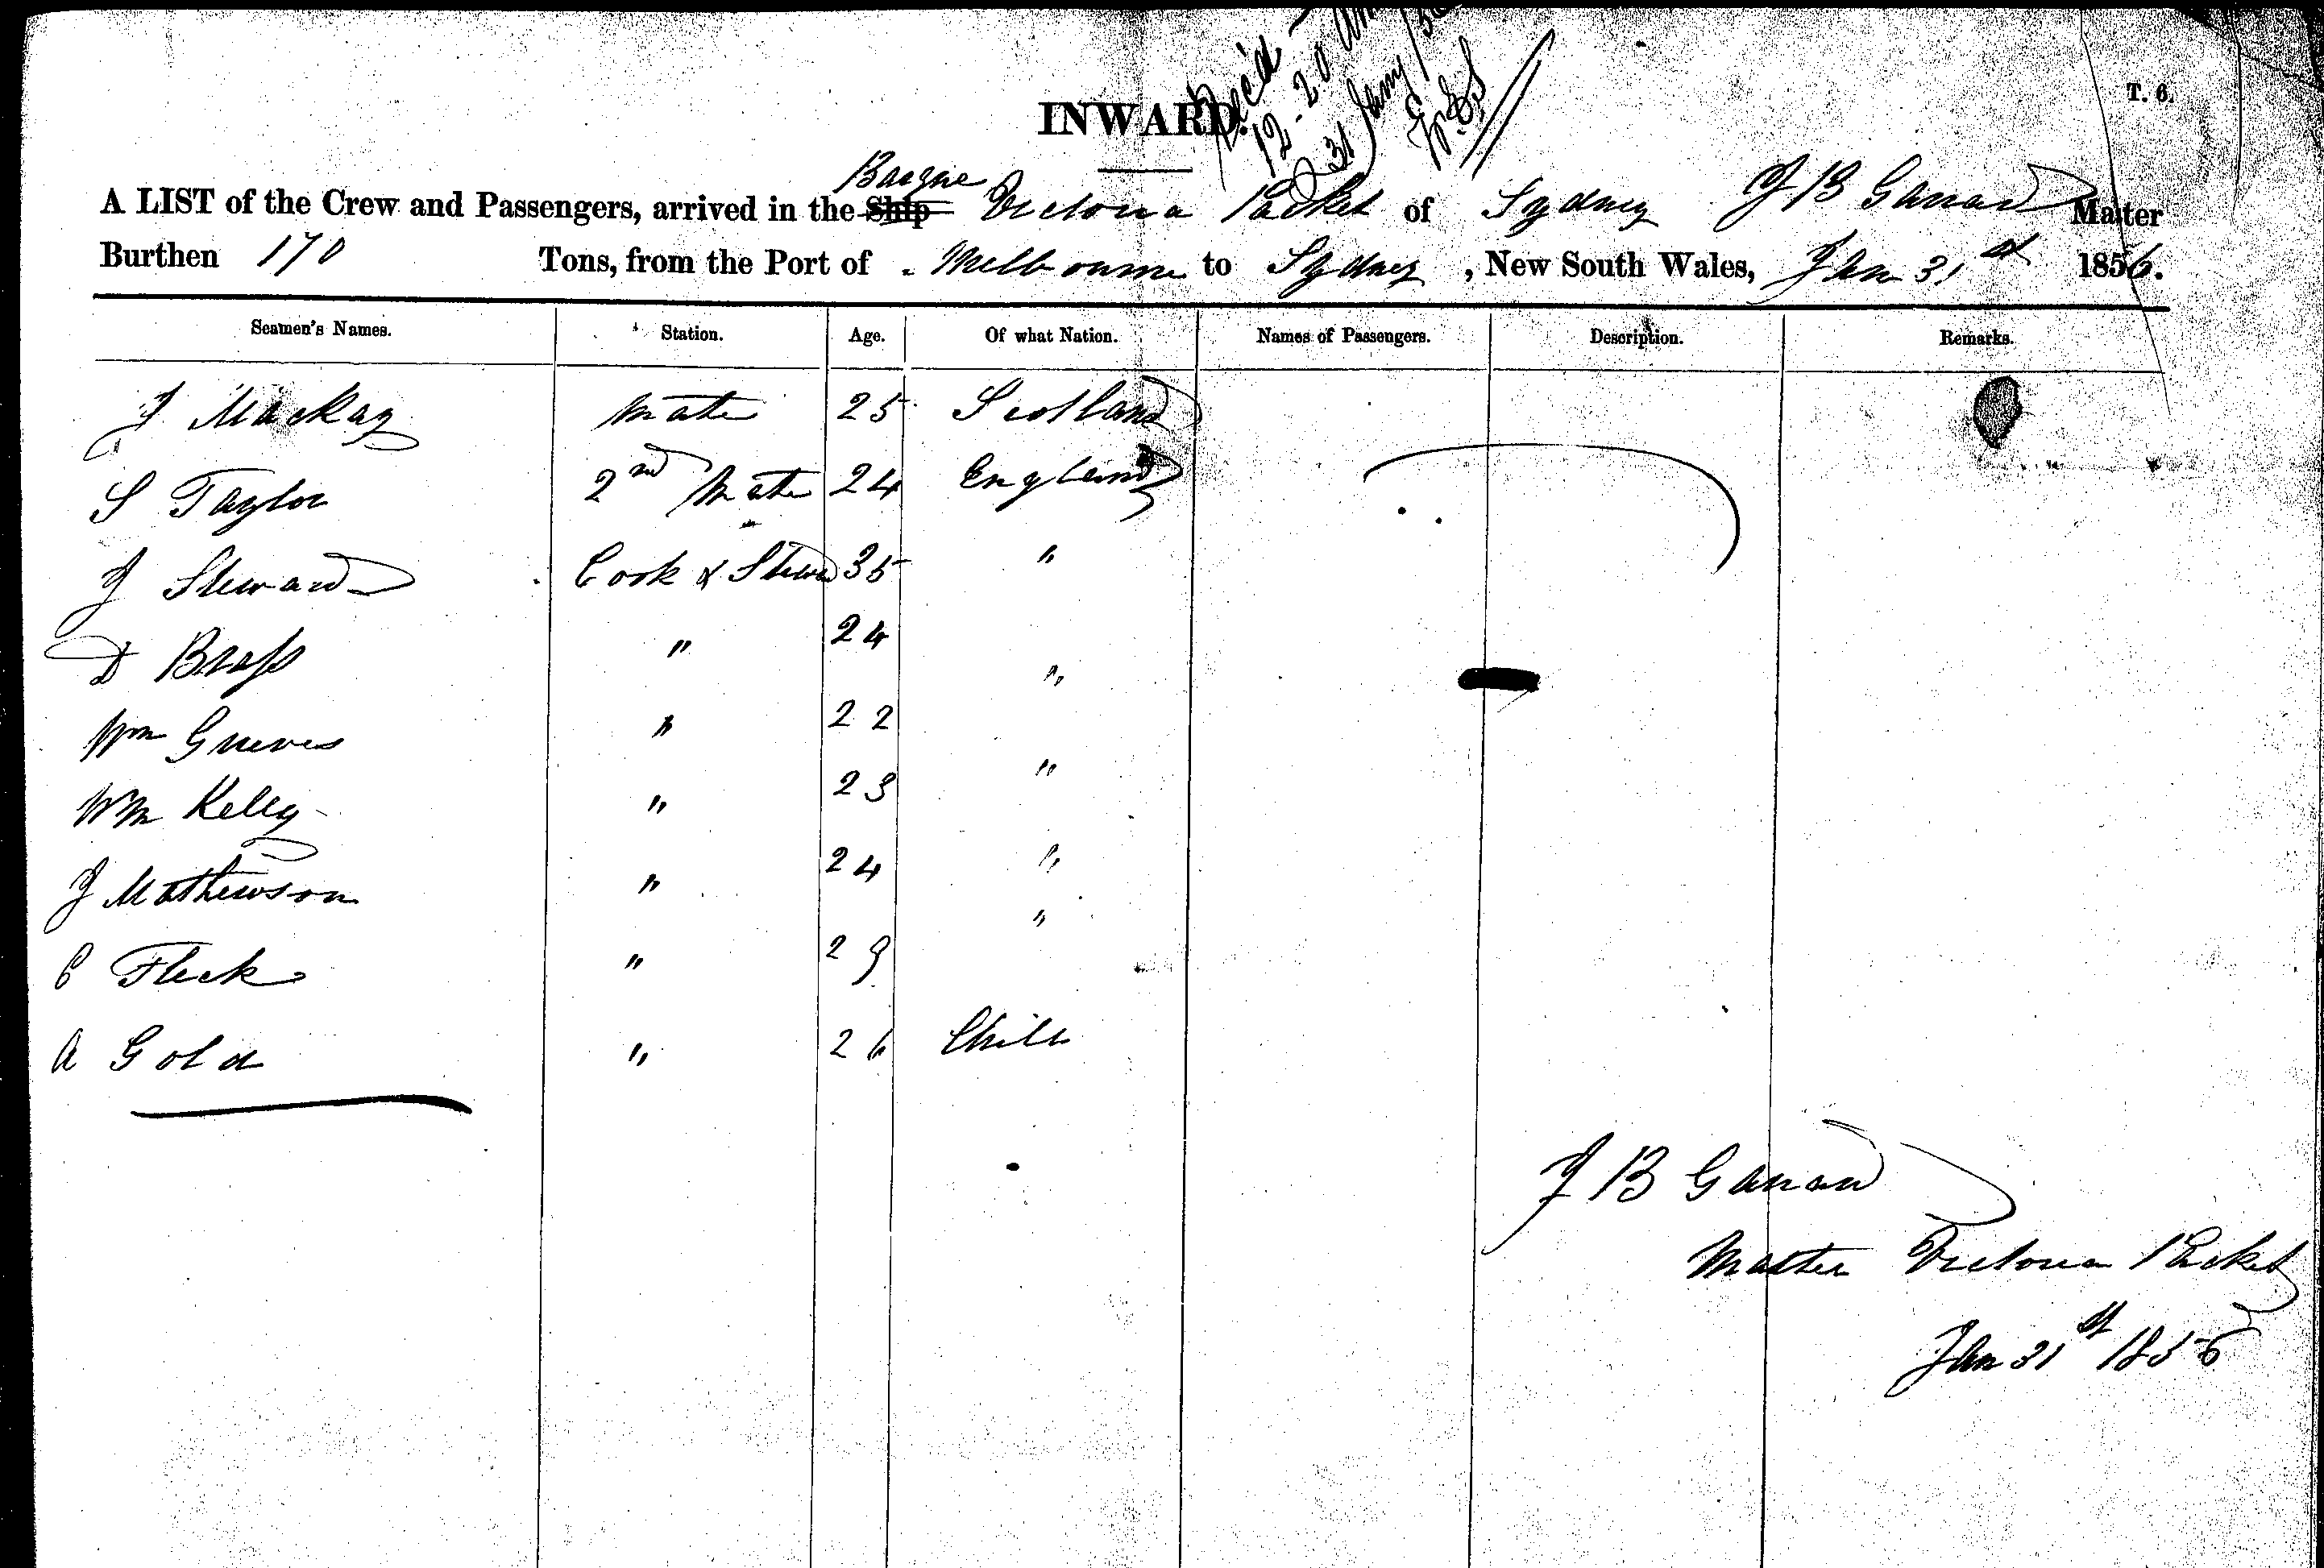 Rec'd
12-20
31 Jany /56
T. 6.
INWARD.
Barque
A LIST of the Crew and Passengers, arrived in the Ship Victoria Packet of Sydney J B Garrard Master
Burthen 170 Tons, from the Port of Melbourne to Sydney, New South Wales, Jan 31st 1856.
Seamen's Names. Station. Age. Of what Nation. Names of Passengers. Description. Remarks.
J Mackay Mate 25 Scotland
S Taylor 2nd Mate 24 England
J Steward Cook & Stewd 35 "
D Brass " 24 "
Wm Grieves " 22 "
Wm Kelly " 23 "
J Mathewson " 24 "
C Fleck " 29
A Gold " 26 Chili
J B Garrard
Master Victoria Packet
Jan 31st 1856